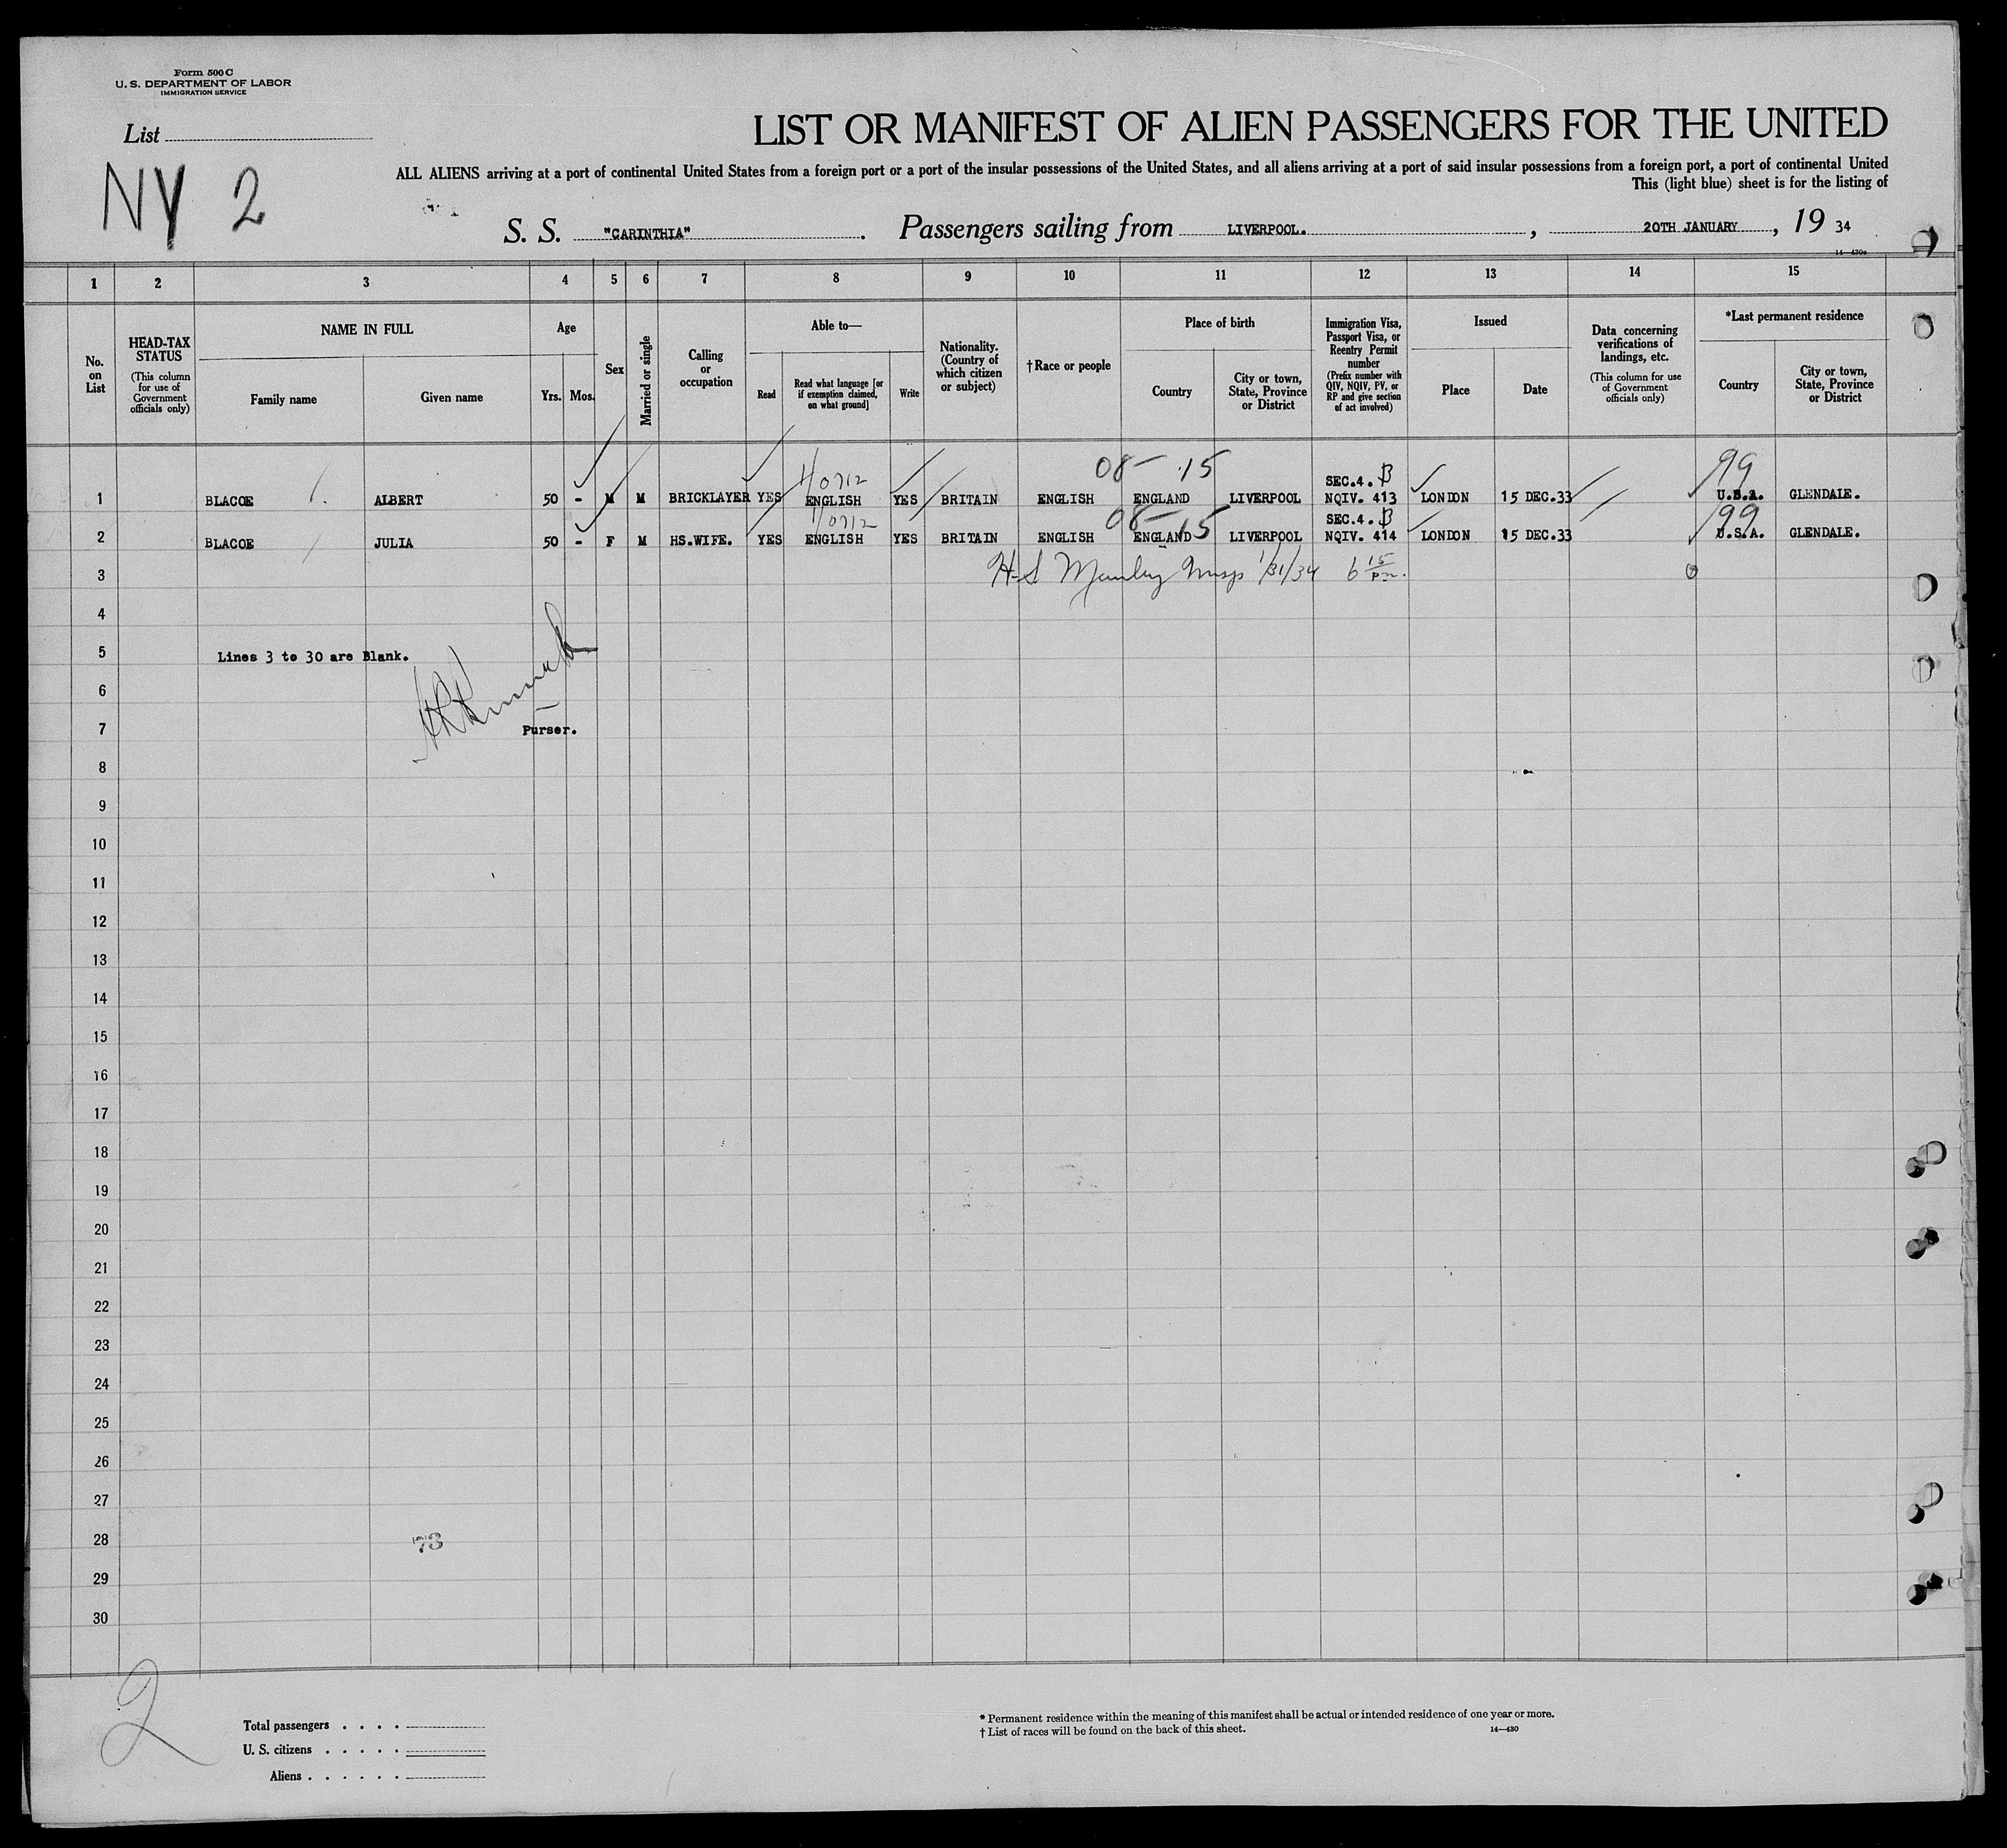 Form 500 C
U. S. DEPARTMENT OF LABOR
IMMIGRATION SERVICE
List
NY 2
LIST OR MANIFEST OF ALIEN PASSENGERS FOR THE UNITED
ALL ALIENS arriving at a port of continental United States from a foreign port or a port of the insular possessions of the United States, and all aliens arriving at a port of said insular possessions from a foreign port, a port of continental United
This (light blue) sheet is for the listing of
S. S. "CARINTHIA". Passengers sailing from LIVERPOOL. , 20TH JANUARY , 19 34
14—430a
1 2 3 4 5 6 7 8 9 10 11 12 13 14 15
No. on List
HEAD-TAX STATUS (This column for use of Government officials only)
NAME IN FULL
Family name
Given name
Age
Yrs.
Mos.
Sex
Married or single
Calling or occupation
Able to—
Read
Read what language [or if exemption claimed, on what ground]
Write
Nationality. (Country of which citizen or subject)
†Race or people
Place of birth
Country
City or town, State, Province or District
Immigration Visa, Passport Visa, or Reentry Permit number (Prefix number with QIV, NQIV, PV, or RP and give section of act involved)
Issued
Place
Date
Data concerning verifications of landings, etc. (This column for use of Government officials only)
*Last permanent residence
Country
City or town, State, Province or District
08 15 SEC.4. B 99
1 BLACOE ALBERT 50 - M M BRICKLAYER YES ENGLISH YES BRITAIN ENGLISH ENGLAND LIVERPOOL NQIV. 413 LONDON 15 DEC.33 U.S.A. GLENDALE.
08 15 SEC.4. B 99
2 BLACOE JULIA 50 - F M HS.WIFE. YES ENGLISH YES BRITAIN ENGLISH ENGLAND LIVERPOOL NQIV. 414 LONDON 15 DEC.33 U.S.A. GLENDALE.
3 1/31/34 6 15 pm.
4
5 Lines 3 to 30 are Blank.
6
7 Purser.
8
9
10
11
12
13
14
15
16
17
18
19
20
21
22
23
24
25
26
27
28 73
29
30
2
Total passengers . . . .
U. S. citizens . . . . .
Aliens . . . . . .
* Permanent residence within the meaning of this manifest shall be actual or intended residence of one year or more.
† List of races will be found on the back of this sheet. 14—430